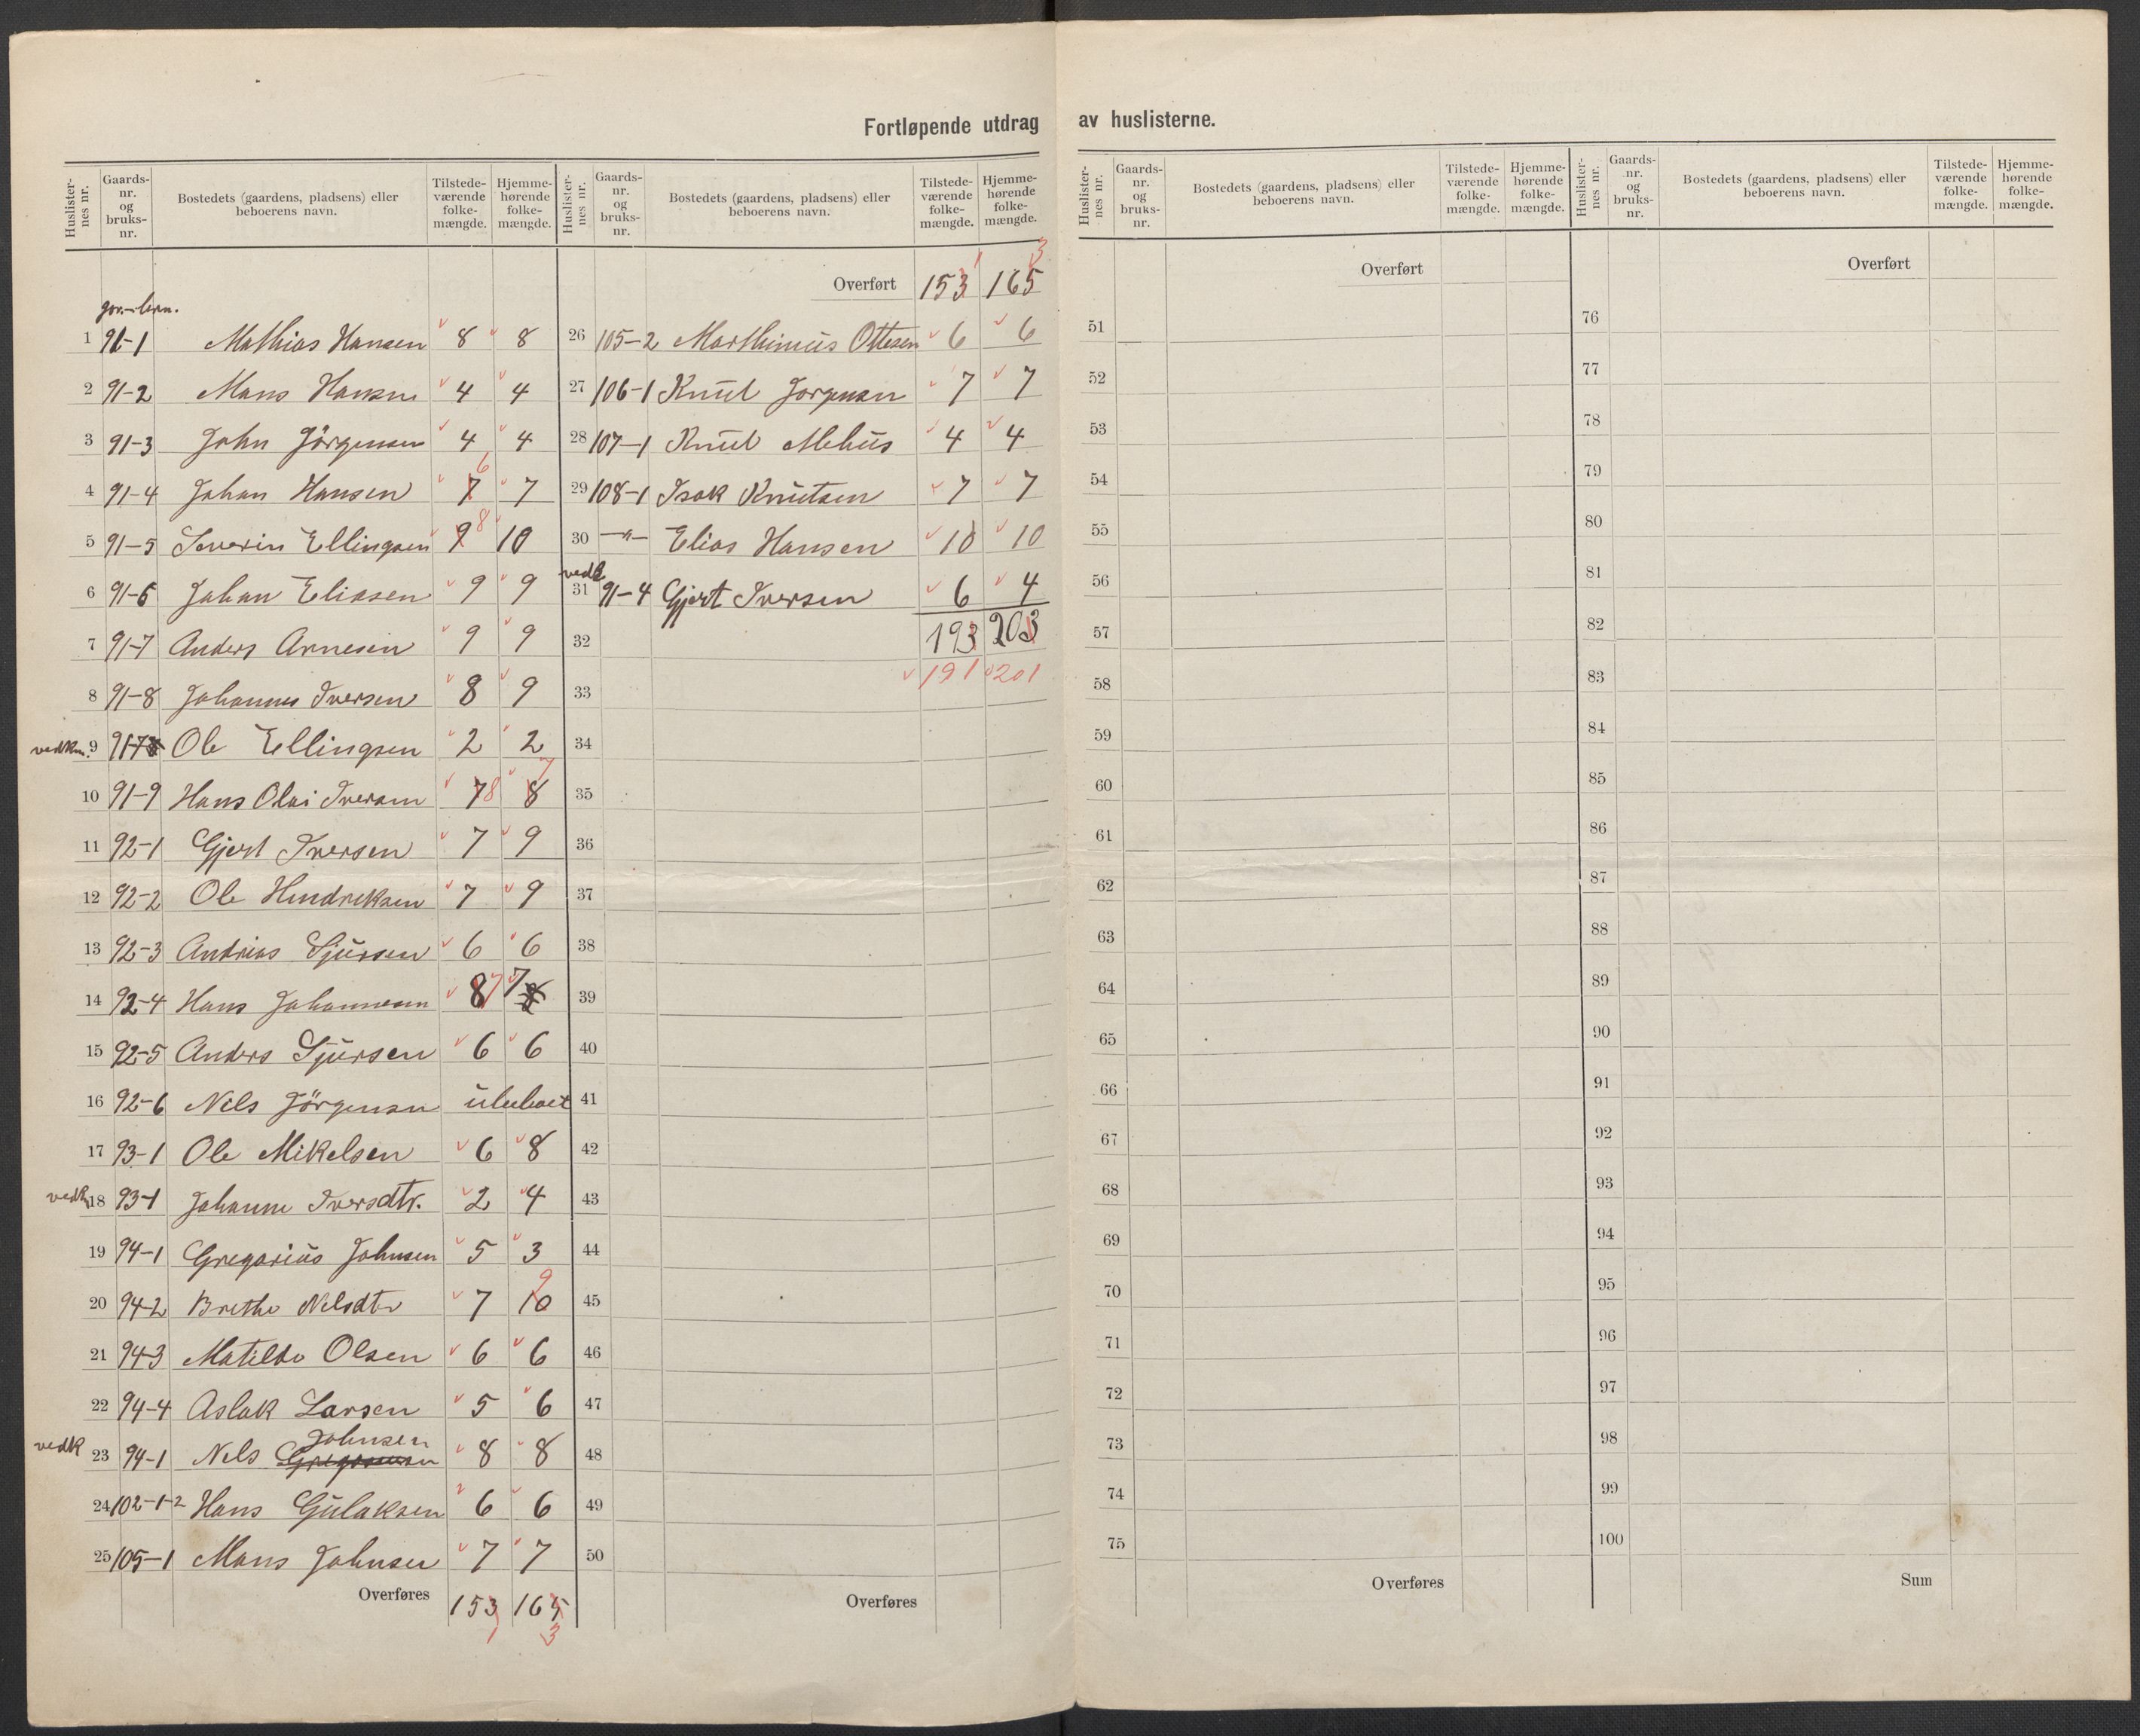 Fortløpende utdrag av huslisterne.
Huslisternes nr. | Gaards-nr. og bruks-nr. | Bostedets (gaardens, pladsens) eller beboerens navn. | Tilstede-værende folke-mængde. | Hjemme-hørende folke-mængde.
1 91-1 Mathias Hansen 8 8
2 91-2 Mans Hansen 4 4
3 91-3 John Jörgensen 4 4
4 91-4 Johan Hansen 7 6 7
5 91-5 Severin Ellingsen 9 8 10
6 91-6 Johan Eliasen 9 9
7 91-7 Anders Arnesen 9 9
8 91-8 Johannes Iversen 8 9
vedkm. 9 Ole Ellingsen 2 2
10 91-9 Hans Olai Iversen 7 8 8 7
11 92-1 Gjert Iversen 7 9
12 92-2 Ole Hendriksen 7 9
13 92-3 Andreas Sjursen 6 6
14 92-4 Hans Johannesen 8 7 7
15 92-5 Anders Sjursen 6 6
16 92-6 Nels Jörgensen ubeboet
17 93-1 Ole Mikelsen 6 8
vedk 18 93-1 Johanne Iversdtr. 2 4
19 94-1 Gregorius Johnsen 5 3
20 94-2 Brethe Nelsdtr 7 10 9
21 94-3 Matilde Olsen 6 6
22 94-4 Aslak Larsen 5 6
vedk 23 94-1 Nels Johnsen 8 8
24 102-1-2 Hans Gulaksen 6 6
25 105-1 Mans Johnsen 7 7
Overføres 153 165
1 3
Huslisternes nr. | Gaards-nr. og bruks-nr. | Bostedets (gaardens, pladsens) eller beboerens navn. | Tilstede-værende folke-mængde. | Hjemme-hørende folke-mængde.
Overført 153 1 165 3
26 105-2 Marthinius Ottesen 6 6
27 106-1 Knut Jorgensen 7 7
28 107-1 Knut Mehus 4 4
29 108-1 Isak Knutsen 7 7
30 —"— Elias Hansen 10 10
vedk 31 91-4 Gjert Iversen 6 4
32 193 203
33 191 201
34
35
36
37
38
39
40
41
42
43
44
45
46
47
48
49
50
Overføres
Huslisternes nr. | Gaards-nr. og bruks-nr. | Bostedets (gaardens, pladsens) eller beboerens navn. | Tilstede-værende folke-mængde. | Hjemme-hørende folke-mængde.
Overført
51
52
53
54
55
56
57
58
59
60
61
62
63
64
65
66
67
68
69
70
71
72
73
74
75
Overføres
Huslisternes nr. | Gaards-nr. og bruks-nr. | Bostedets (gaardens, pladsens) eller beboerens navn. | Tilstede-værende folke-mængde. | Hjemme-hørende folke-mængde.
Overført
76
77
78
79
80
81
82
83
84
85
86
87
88
89
90
91
92
93
94
95
96
97
98
99
100
Sum